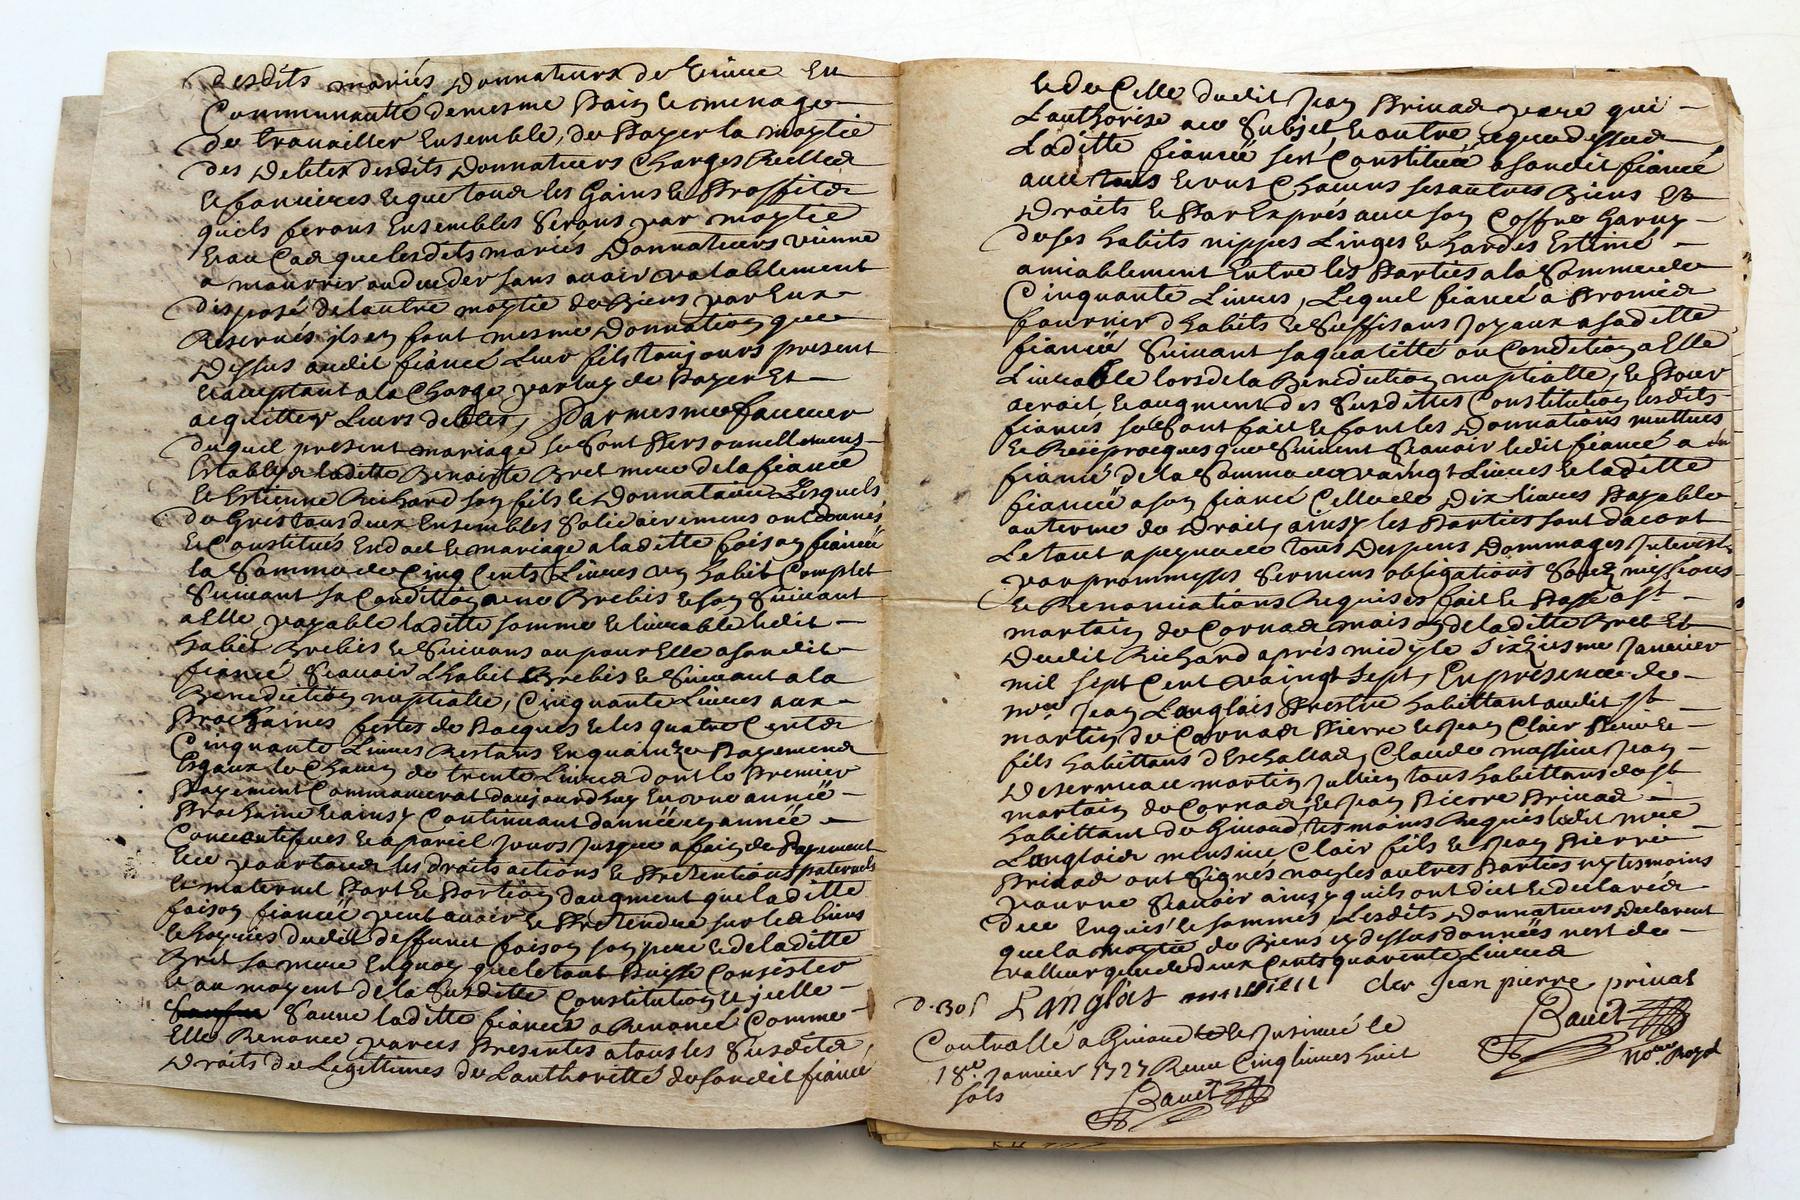 desdits mariés donnateurs de vivre en
Communauté de mesme pain et menage
de travailler Ensemble, de payer la moytié
des debtes desdits donnateurs Charges reelles
et foncieres et que tous les Gains et proffits
quils feront Ensembles seront par moytié
Et au Cas que lesdits mariés Donnateurs vienne
a mourrir ou deceder sans avoir valablement
disposé de lautre moytié de Biens par Eux
Reservés ils en font mesme Donnation que
dessus audit fiancé Leur fils toujours present
et acceptant a la Charge par luy de payer Et
acquitter Leurs debtes, Par mesme faveur
duquel present mariage se sont personnellement
Establys laditte Benoitte Bret mere de la fiancé
et Estienne Richard son fils et Donnataire Lesquels
de Gré tous deux Ensembles solidairement ont donnés
et Constitués En dot et mariage a laditte foison fiancée
la Somme de Cinq Cents Livres un habit Complet
Suivant sa Condition une Brebis et son Suivant
a Elle payable laditte somme et livrable ledit
habit Brebis et Suivans ou pour Elle a sondit
fiancé Scavoir Lhabit Brebis et Suivant a la
Benediction nuptialle, Cinquante Livres aux
Prochaines festes de Pacques et les quatre Cents
Cinquante Livres Restans En quinze Payemens
Esgaux le Chacun de trente Livres dont le Premier
Payement Commancerat daujourdhuy En une année
Prochaine et ainsy Continuant dannée en année
Consecutifves et a pareil jours jusque a fain de Payement
Et ce pour tous les droits actions et Pretentions paternels
et maternel Part et Portion daugment que laditte
foison fiancée peut avoir et Pretendre sur les biens
et hoyries dudit deffunct foison son pere et de laditte
Bret sa mere En quoy que le tout Puisse Consister
et au moyent de la susditte Constitution et jcelle
Sauve laditte fiancée a Renoncé Comme
Elle Renonce par ces Presentes a tous les Susdits
Droits de Legittimes de Lauthorité de sondit fiancé
et de Celle dudit Jean Privas pere qui
Lauthorise au Subjet, et outre ce que dessus
Laditte fiancée sest Constituée a sondit fiancé
avec tous et uns Chacuns ses autres Biens et
Droits et Par Exprés avec son Coffre Garny
de ses habits nippes Linges et hardes Estimé
amiablement Entre les Parties a la Somme de
Cinquante Livres, Lequel fiancé a Promis
fournir dhabits et Suffisans Joyaux a saditte
fiancée Suivant sa qualitté ou Condition a Elle
Livrable lors de la Benediction nuptialle, et Pour
acroit et augment des Susdittes Constitution lesdits
fiancés se sont fait et font les Donnations mutues
et Reciproques que Suivent Scavoir ledit fiancé a sa
fiancé de la Somme de vaingt Livres et laditte
fiancée a son fiancé Celle de Dix livres Payable
au terme de Droit, ainsy les Parties sont dacort
Le tout a peyne de tous Despens Dommages Interests
par prommesses Sermens obligations Soubmissions
et Renonciations Requises fait et Passé a st
martin de Cornas maison de laditte Bret Et
Dudit Richard aprés midy le Sixziesme Janvier
mil Sept Cent vaingt Sept, En presence de
mre Jean Langlois Prestre habittant audit st
martin de Cornas Pierre et Jean Clair Pere et
fils habittans dEschallas, Claude massieu Jean
Desermeau martin Jullien tous habittans de st
martin de Cornas et Jean Pierre Privas
habittant de Givors, tesmoins Requis ledit mre
Langlois messieu Clair fils et Jean Pierre
Privas ont Signés non les autres Parties ny tesmoins
pour ne Scavoir ainsy quils ont dict et declarés
De ce Enquis et sommés Lesdits Donnateurs declarent
que la moytié de Biens cy dessus donnés nest de
valleur que de deux Cents quarente Livres
Langlois massieu cler Jean pierre privas
Bauet
Contrallé a Givors et Insinué le
18e Janvier 1727 Receu Cinq livres huit
sols
Bauet
no.re Royal